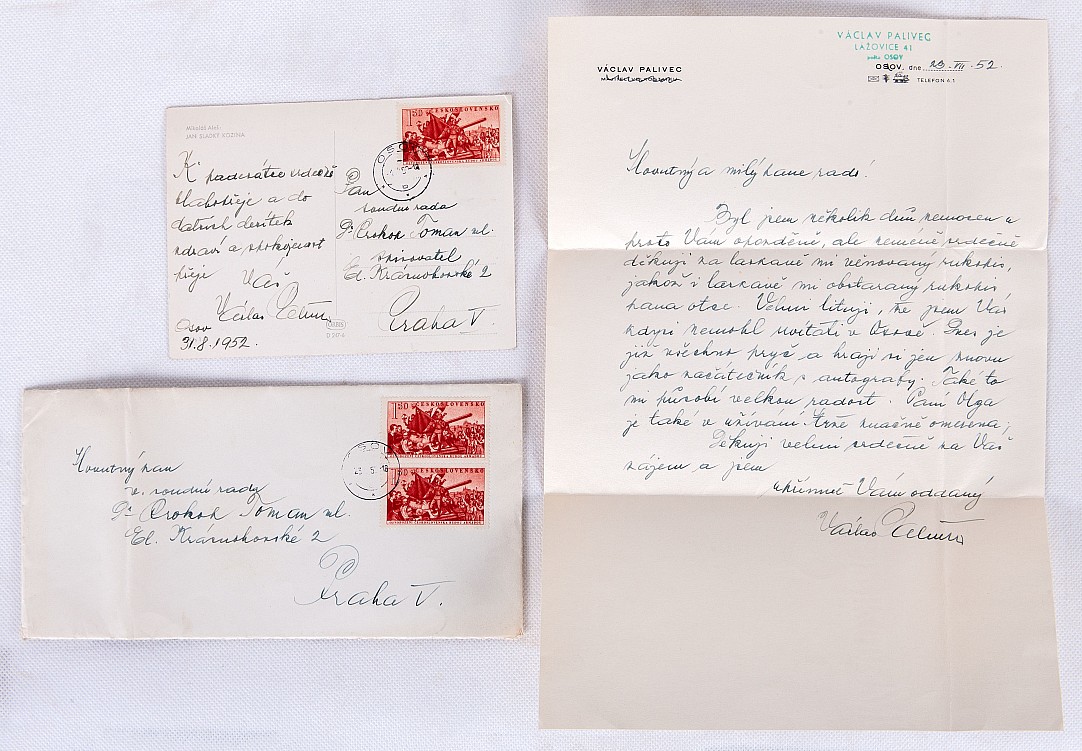 Mikoláš Aleš:
JAN SLADKÝ KOZINA
K padesátce srdečně
blahopřeje a do
dalších desítek
zdraví a spokojenost
přeje
Váš
Václav Palivec
Osov
31.8.1952.
ORBIS
1.50
ČESKOSLOVENSKO
OSOV
Pan
soudní rada
Dr Prokop Toman ml.
spisovatel
El. Krásnohorské 2
Praha V.
1.50
ČESKOSLOVENSKO
1.50
ČESKOSLOVENSKO
Slovutný pan
v. soudní rada
Dr Prokop Toman ml.
El. Krásnohorské 2
Praha V.
VÁCLAV PALIVEC
LAŽOVICE 41
pošta OSOV
VÁCLAV PALIVEC
OSOV, dne 29. VII. 52.
TELEFON č. 1
Slovutný a milý pane rado.
Byl jsem několik dnů nemocen a
proto Vám opožděně, ale neméně srdečně
děkuji za laskavě mi věnovaný rukopis,
jakož i laskavě mi obstaraný rukopis
pana otce. Velmi lituji, že jsem Vás
kdysi nemohl uvítati v Osově. Dnes je
již všechno pryč a hraji si jen znovu
jako začátečník s autografy. Také to
mi působí velkou radost. Paní Olga
je také v užívání značně omezena,
Děkuji velmi srdečně za Váš
zájem a jsem
upřímně Vám oddaný
Václav Palivec